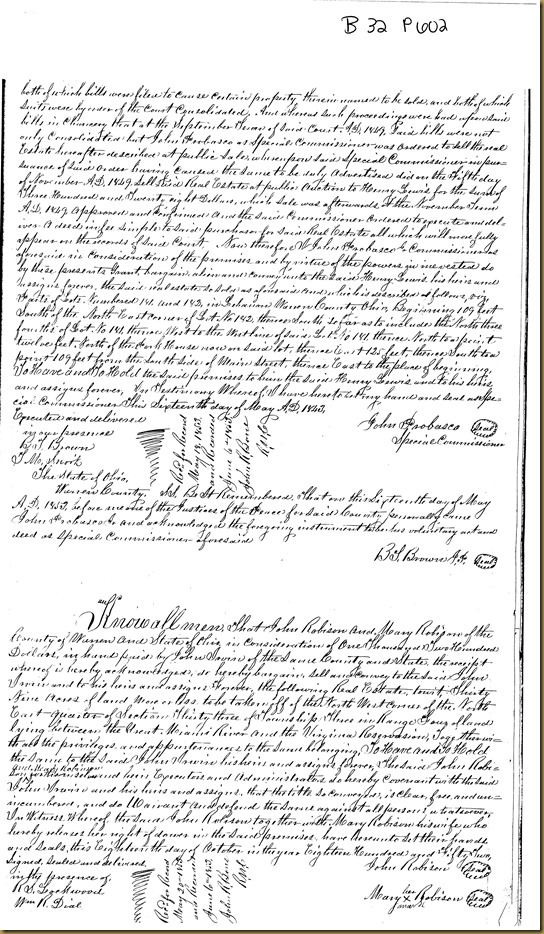 B 32 P 602
both of which bills were filed to cause certain property therein named to be sold, and both of which
suits were by order of the Court Consolidated. And whereas such proceedings were had upon said
bills in Chancery that at the September Term of Said Court, A.D. 1849, Said bills were not
only Consolidated but John Probasco as Special Commissioner was Ordered to sell the real
Estate hereafter described at public Sale, whereupon said Special Commissioner in pur=
suance of said Order having Caused the same to be duly Advertised did on the Fifth day
of November A.D. 1849 Sell said Real Estate at public Auction to Henry Lewis for the Sum of
Three Hundred and Twenty eight Dollars, which Sale was afterwards at the November Term
A.D. 1849 Approved and Confirmed And the said Commissioner Ordered to execute and del=
iver A deed in fee simple to Said purchaser for said Real Estate all which will more fully
appear on the records of said Court. Now therefore I John Probasco Jr Commissioner as
aforesaid in Consideration of the premises and by virtue of the powers in me vested do
by these presents Grant, bargain, alien and convey unto the said Henry Lewis his heirs and
assigns forever, the said real estate so sold as aforesaid And which is described as follows, viz
Parts of Lots Numbered 141 and 142, in Lebanon Warren County Ohio, Beginning 109 feet
South of the North East corner of Lot No 142, thence South so far as to include the North three
fourths of Lot No 141, thence West to the West line of said Lot No 141 thence North to a point
twelve feet North of the House now on said lot, thence East 125 feet, thence South to a
point 109 feet from the South side of Main Street, thence East to the place of beginning.
To Have and To Hold the said premises to him the said Henry Lewis and to his heirs
and assigns forever. In Testimony Whereof I have hereto set my hand and seal as Spe=
cial Commissioner This Sixteenth day of May A.D. 1853.
Executed and delivered
in our presence
B. S. Brown
John Probasco Seal
Special Commissioner
Rec'd for Record
May 17, 1853
and Recorded
June 6th 1853
The State of Ohio,
Warren County. SS. Be It Remembered, That on this Sixteenth day of May
A.D. 1853, before me one of the Justices of the Peace for Said County personally came
John Probasco Jr and acknowledged the foregoing instrument to be his voluntary act and
deed as Special Commissioner aforesaid
B. S. Brown J.P. Seal
Know all men, That John Robison And Mary Robison of the
County of Warren And State of Ohio in consideration of One Thousand Two Hundred
Dollars, in hand paid by John Irwin of the Same County and State, the receipt
whereof is hereby acknowledged, do hereby bargain, sell and convey to the said John
Irwin and to his heirs and assigns Forever, the following Real Estate, to wit, Thirty
Nine Acres of land More or less. to be taken off of the North West corner of the North
East quarter of Section Thirty three of Township Three in Range Four of land
lying between the Great Miami River And the Virginia Reservation, Together wi=
th all the privileges and appurtenances to the Same belonging, To Have and To Hold
the Same to the Said John Irwin his heirs and assigns forever, The Said John Robi=
son and Mary Robison
for themselves and heirs Executors and Administrators do hereby Covenant with the said
John Irwin and his heirs and assigns, that the title so conveyed, is Clear, free and un=
incumbered, and do Warrant And defend the Same against all persons whatsoever
In Witness Whereof, the said John Robison together with Mary Robison his wife who
hereby releases her right of dower in the Said premises, have hereunto set their hands
and seals, this Eighteenth day of October in the year Eighteen Hundred and Fifty Two,
Signed, Sealed and delivered
in the presence of
R. S. Lockwood
Wm R. Dial
John Robison Seal
Mary X Robison Seal
her
mark
Rec'd for Record
May 23, 1853
and Recorded
June 6th 1853